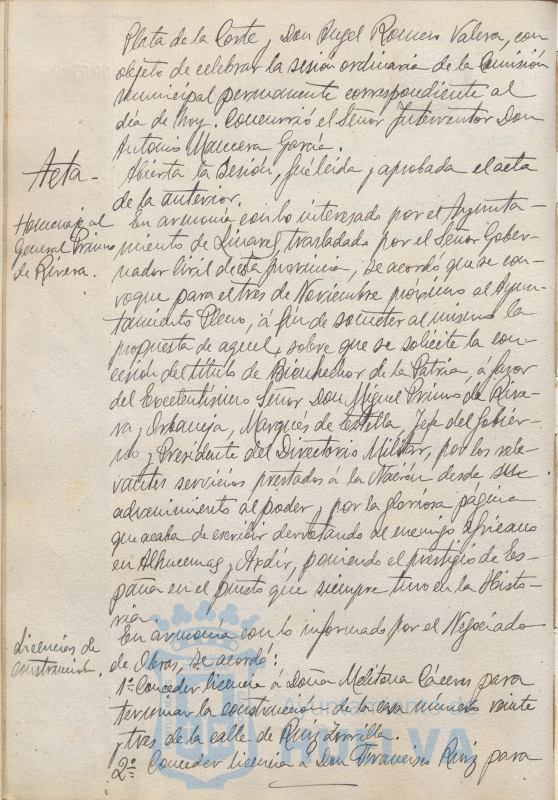 Plata de la Corte, y Don Angel Romero Valera, con
objeto de celebrar la sesión ordinaria de la Comisión
Municipal permanente correspondiente al
día de hoy. Concurrió el Señor Interventor Don
Antonio Mancera García.
Acta-
Abierta la sesión, fué leida y aprobada el acta
de la anterior.
Homenaje al
General Primo
de Rivera.
En armonia con lo interesado por el Ayunta-
miento de Linares, trasladado por el Señor Gober-
nador Civil de esta provincia, se acordó que se con-
voque para el tres de Noviembre próximo al Ayun-
tamiento Pleno, á fin de someter al mismo la
propuesta de aquel, sobre que se solicite la con-
cesión del título de Bienhechor de la Patria, á favor
del Excelentísimo Señor Don Miguel Primo de Rive-
ra y Orbaneja, Marqués de Estella, Jefe del Gobier-
no y Presidente del Directorio Militar, por los rele-
vantes servicios prestados á la Nación desde su
advenimiento al poder, y por la gloriosa página
que acaba de escribir derrotando al enemigo africano
en Alhucemas y Axdir, poniendo el prestigio de Es-
paña en el puesto que siempre tuvo en la Histo-
ria.
Licencias de
construcción.
En armonía con lo informado por el Negociado
de Obras, se acordó:
1º Conceder licencia á Doña Melitona Cáceres para
terminar la construcción de la casa número veinte
y tres de la calle de Ruiz Zorrilla.
2º Conceder licencia á Don Francisco Ruiz para
HUELVA